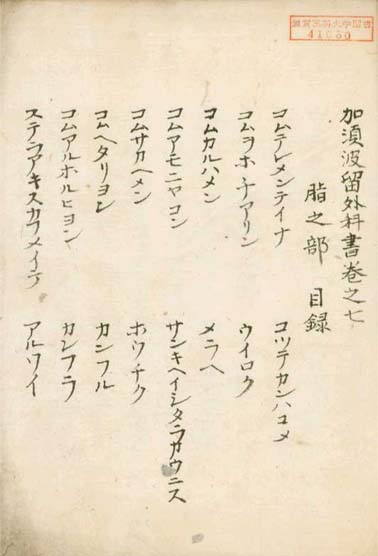 加須波留外科書巻之七
脂之部 目録
コムテレメンテイナ コツテカンハユメ
コムヲホナアリン ウイロク
コムカルハメン メラヘ
コムアモニヤコン サンキヘイシタラカウニス
コムサカヘメン ホウチク
コムヘタリヨン カンフル
コムアルホルヒヨン カンフラ
ステラアキスカラメイテ アルワイ